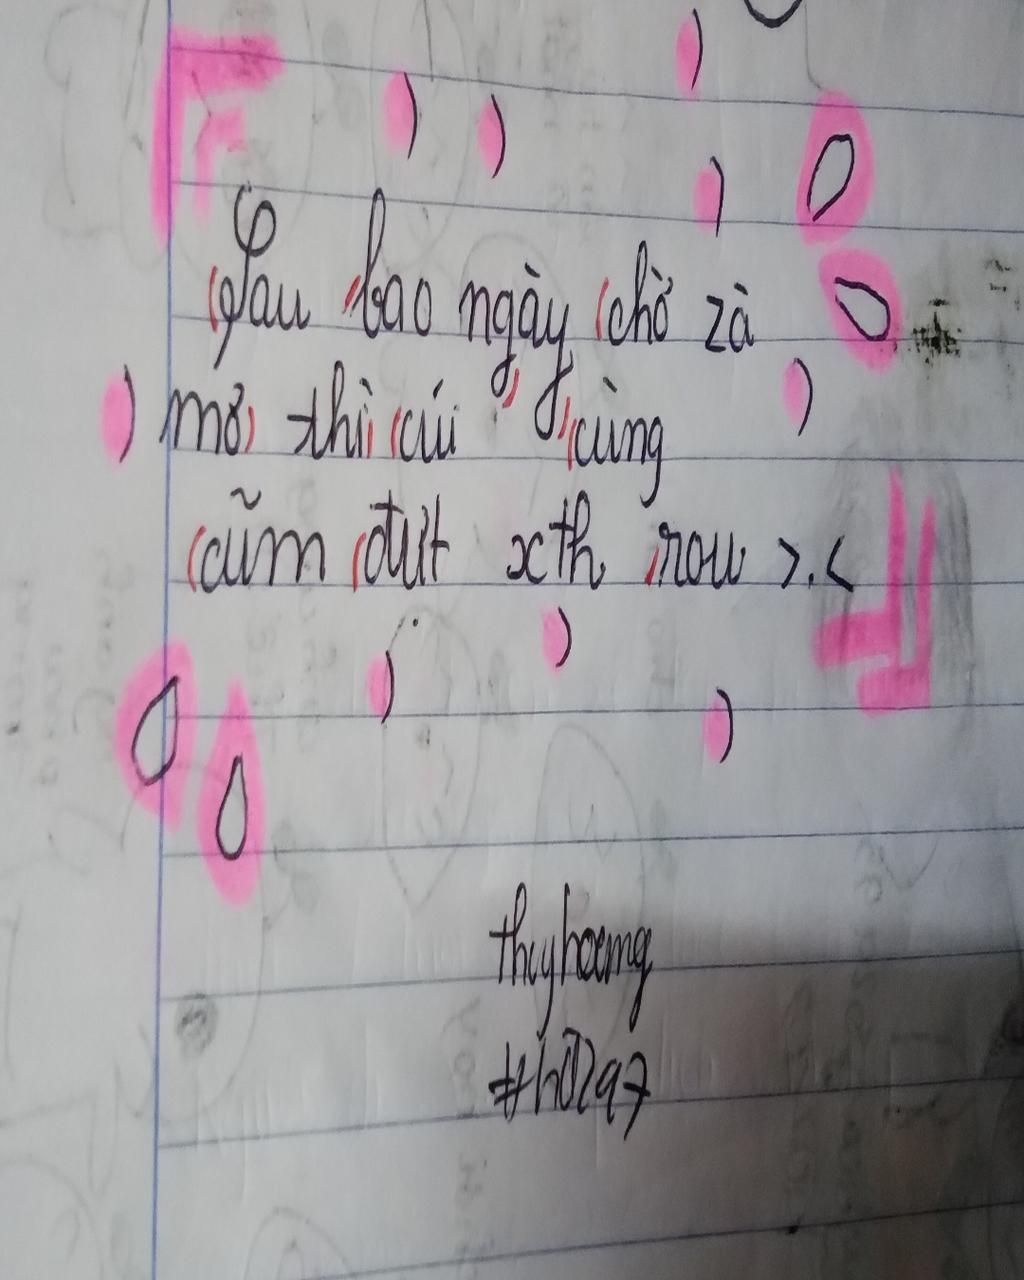 Sau bao ngày chờ zà
mơ thì cúi cùng
cũm đựt xth rou >.<
thuyhoang